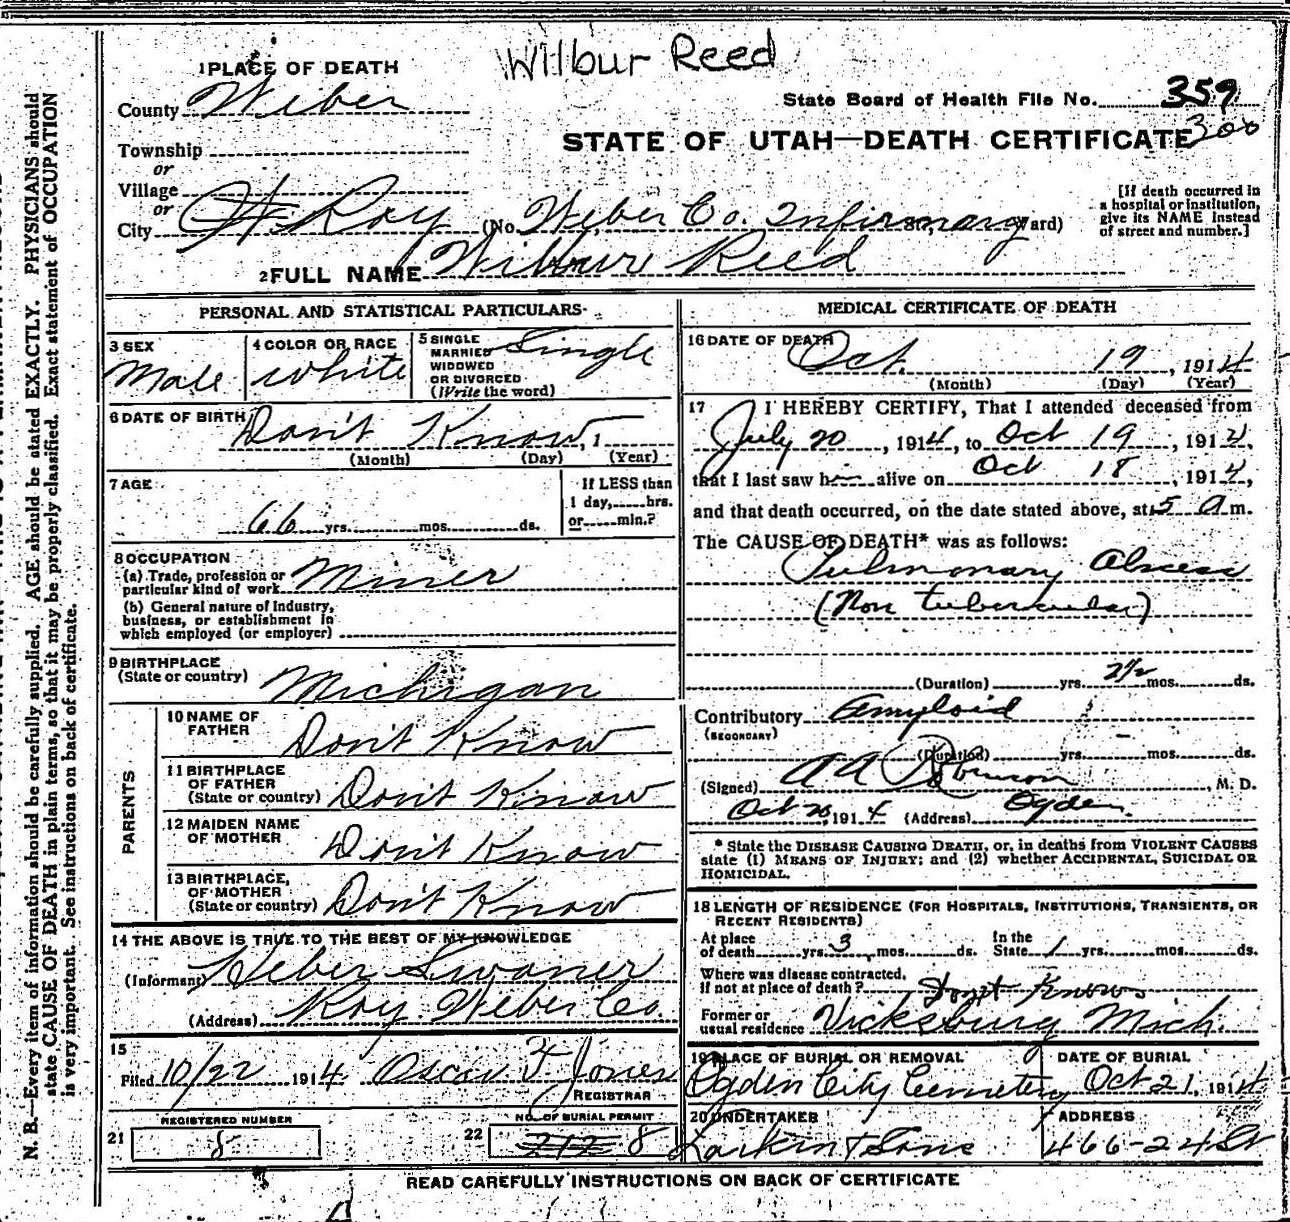 Wilbur Reed
1 PLACE OF DEATH
County Weber
State Board of Health File No. 359
300
STATE OF UTAH—DEATH CERTIFICATE
Township
or
Village
or
City Roy (No. Weber Co. Infirmary St., Ward)
[If death occurred in
a hospital or institution,
give its NAME instead
of street and number.]
2 FULL NAME Wilbur Reed
PERSONAL AND STATISTICAL PARTICULARS
3 SEX
Male
4 COLOR OR RACE
White
5 SINGLE
MARRIED
WIDOWED
OR DIVORCED
(Write the word)
Single
6 DATE OF BIRTH
Don't Know, 1
(Month) (Day) (Year)
7 AGE
66 yrs. mos. ds.
If LESS than
1 day, hrs.
or min.?
8 OCCUPATION
(a) Trade, profession or
particular kind of work Miner
(b) General nature of industry,
business, or establishment in
which employed (or employer)
9 BIRTHPLACE
(State or country) Michigan
PARENTS
10 NAME OF
FATHER Don't Know
11 BIRTHPLACE
OF FATHER
(State or country) Don't Know
12 MAIDEN NAME
OF MOTHER Don't Know
13 BIRTHPLACE,
OF MOTHER
(State or country) Don't Know
14 THE ABOVE IS TRUE TO THE BEST OF MY KNOWLEDGE
(Informant) Heber Swaner
(Address) Roy Weber Co.
15
Filed 10/22 1914 Oscar F Jones
REGISTRAR
21 REGISTERED NUMBER
8
22 NO. OF BURIAL PERMIT
212 8
MEDICAL CERTIFICATE OF DEATH
16 DATE OF DEATH
Oct. 19, 1914
(Month) (Day) (Year)
17 I HEREBY CERTIFY, That I attended deceased from
July 20, 1914, to Oct 19, 1914,
that I last saw h alive on Oct 18, 1914,
and that death occurred, on the date stated above, at 5 a m.
The CAUSE OF DEATH* was as follows:
Pulmonary Abscess
(Non tubercular)
(Duration) yrs. 2½ mos. ds.
Contributory Amyloid
(SECONDARY)
(Duration) yrs. mos. ds.
(Signed) A A Robinson, M. D.
Oct 20, 1914 (Address) Ogden.
* State the DISEASE CAUSING DEATH, or, in deaths from VIOLENT CAUSES
state (1) MEANS OF INJURY; and (2) whether ACCIDENTAL, SUICIDAL OR
HOMICIDAL.
18 LENGTH OF RESIDENCE (FOR HOSPITALS, INSTITUTIONS, TRANSIENTS, OR
RECENT RESIDENTS)
At place
of death yrs. 3 mos. ds. In the
State 1 yrs. mos. ds.
Where was disease contracted,
if not at place of death? Don't Know
Former or
usual residence Vicksburg Mich.
19 PLACE OF BURIAL OR REMOVAL
Ogden City Cemetery
DATE OF BURIAL
Oct 21, 1914
20 UNDERTAKER
Larkin & Sons
ADDRESS
466-24 St
READ CAREFULLY INSTRUCTIONS ON BACK OF CERTIFICATE
N. B.—Every item of information should be carefully supplied. AGE should be stated EXACTLY. PHYSICIANS should
state CAUSE OF DEATH in plain terms, so that it may be properly classified. Exact statement of OCCUPATION
is very important. See instructions on back of certificate.